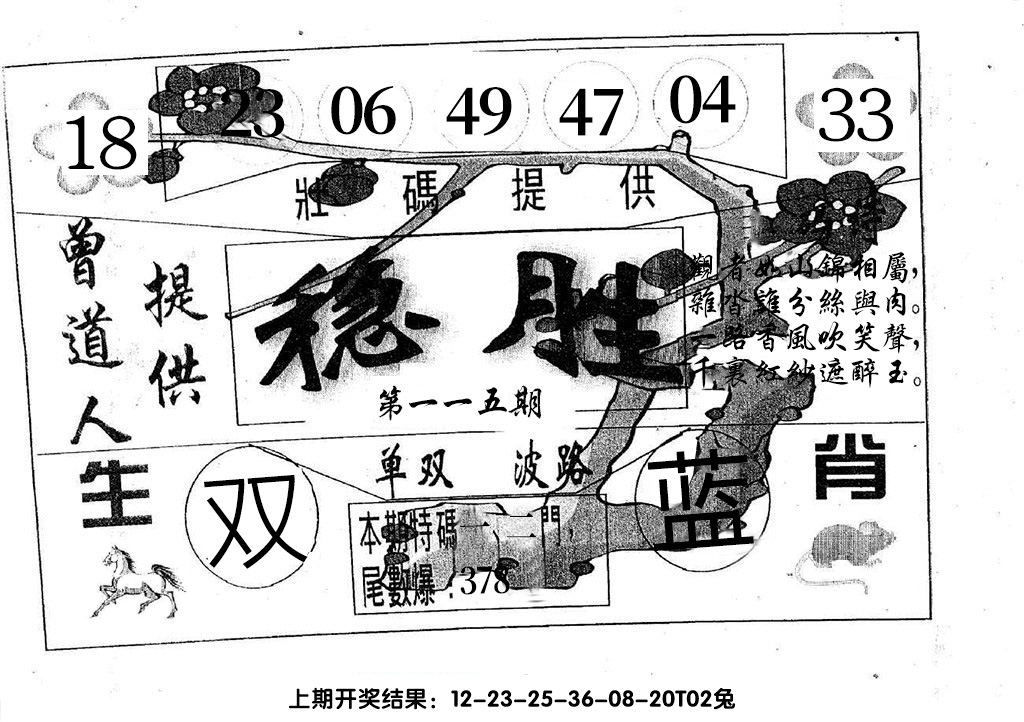 18 23 06 49 47 04 33
壯碼提供
曾道人
提供
稳胜
第一一五期
觀者如山錦相屬，
雜沓誰分絲與肉。
路香風吹笑聲，
千裏紅紗遮醉玉。
单双 波路
生肖
双
蓝
本期特碼一、二門，
尾數爆：378
上期开奖结果：12-23-25-36-08-20T02兔